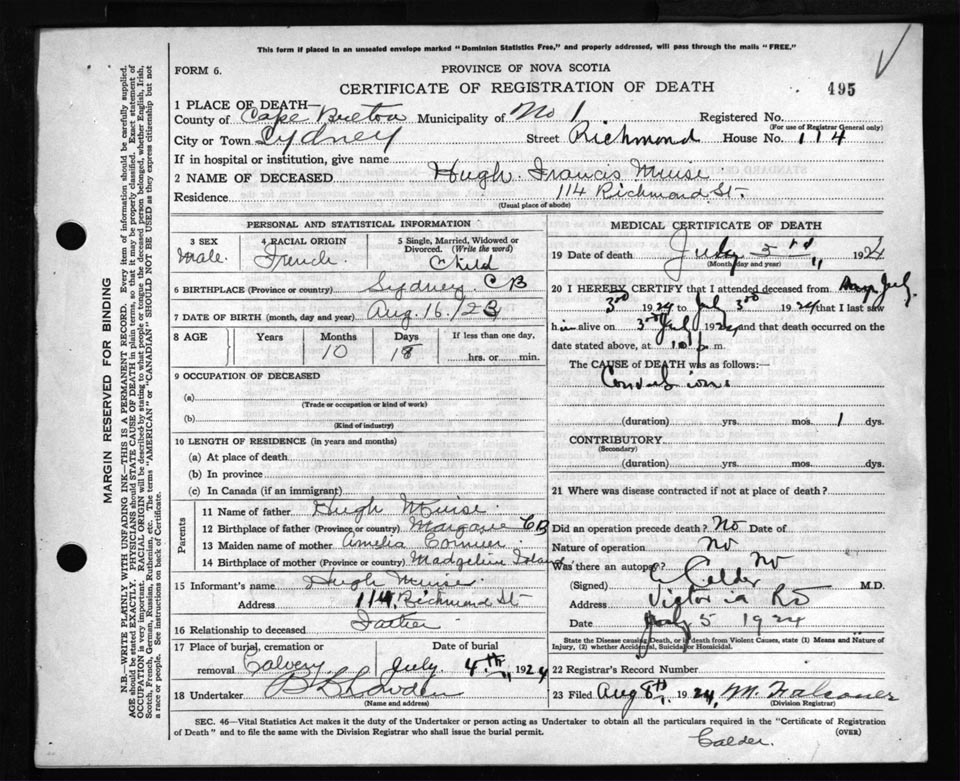 This form if placed in an unsealed envelope marked "Dominion Statistics Free," and properly addressed, will pass through the mails "FREE."
FORM 6.
PROVINCE OF NOVA SCOTIA
CERTIFICATE OF REGISTRATION OF DEATH
495
1 PLACE OF DEATH—
County of Cape Breton Municipality of No 1 Registered No.
(For use of Registrar General only)
City or Town Sydney Street Richmond House No. 114
If in hospital or institution, give name
2 NAME OF DECEASED Hugh Francis Muise
Residence 114 Richmond St
(Usual place of abode)
PERSONAL AND STATISTICAL INFORMATION
3 SEX 4 RACIAL ORIGIN 5 Single, Married, Widowed or Divorced. (Write the word)
Male. French. Child
6 BIRTHPLACE (Province or country) Sydney CB
7 DATE OF BIRTH (month, day and year) Aug. 16/23
8 AGE Years Months Days If less than one day,
10 18 hrs. or min.
9 OCCUPATION OF DECEASED
(a)
(Trade or occupation or kind of work)
(b)
(Kind of industry)
10 LENGTH OF RESIDENCE (in years and months)
(a) At place of death
(b) In province
(c) In Canada (if an immigrant)
Parents
11 Name of father Hugh Muise
12 Birthplace of father (Province or country) Margaree CB
13 Maiden name of mother Amelia Cormier
14 Birthplace of mother (Province or country) Madgelein Islands
15 Informant's name Hugh Muise
Address 114 Richmond St
16 Relationship to deceased Father
17 Place of burial, cremation or removal Calvery Date of burial July 4th 1924
18 Undertaker
(Name and address)
MEDICAL CERTIFICATE OF DEATH
19 Date of death July 3rd 1924
(Month, day and year)
20 I HEREBY CERTIFY that I attended deceased from July
3rd 1924 to July 3rd 1924 that I last saw
him alive on 3rd July 1924 and that death occurred on
date stated above, at 10 p.m.
The CAUSE OF DEATH was as follows:—
Convulsions
(duration) yrs. mos. 1 dys.
CONTRIBUTORY
(Secondary)
(duration) yrs. mos. dys.
21 Where was disease contracted if not at place of death?
Did an operation precede death? No Date of
Nature of operation No
Was there an autopsy? No
(Signed) Calder M.D.
Address Victoria Rd
Date July 5 1924
State the Disease causing Death, or in death from Violent Causes, state (1) Means and Nature of Injury, (2) whether Accidental, Suicidal or Homicidal.
22 Registrar's Record Number
23 Filed Aug 8th 1924, M. Falconer
(Division Registrar)
SEC. 46—Vital Statistics Act makes it the duty of the Undertaker or person acting as Undertaker to obtain all the particulars required in the "Certificate of Registration
of Death" and to file the same with the Division Registrar who shall issue the burial permit.
(OVER)
Calder.
MARGIN RESERVED FOR BINDING
N.B.—WRITE PLAINLY WITH UNFADING INK—THIS IS A PERMANENT RECORD. Every item of information should be carefully supplied.
AGE should be stated EXACTLY. PHYSICIANS should STATE CAUSE OF DEATH in plain terms, so that it may be properly classified. Exact statement of
OCCUPATION is very important. RACIAL ORIGIN will be described by stating to what people or tongue the deceased person belonged, whether English, Irish,
Scotch, French, German, Russian, Ruthenian, etc. The terms "AMERICAN" or "CANADIAN" SHOULD NOT BE USED as they express citizenship but not
a race or people. See instructions on back of Certificate.